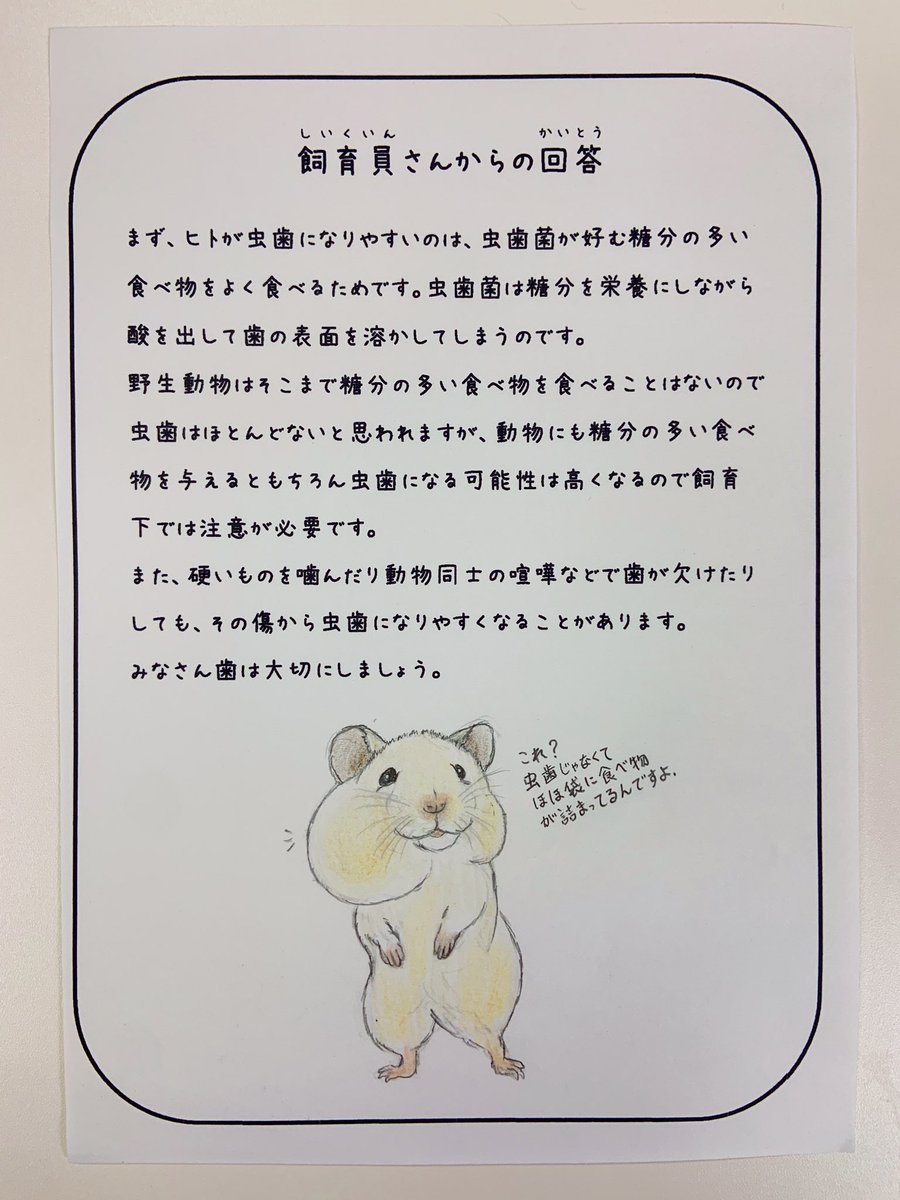 しいくいん かいとう
飼育員さんからの回答
まず、ヒトが虫歯になりやすいのは、虫歯菌が好む糖分の多い
食べ物をよく食べるためです。虫歯菌は糖分を栄養にしながら
酸を出して歯の表面を溶かしてしまうのです。
野生動物はそこまで糖分の多い食べ物を食べることはないので
虫歯はほとんどないと思われますが、動物にも糖分の多い食べ
物を与えるともちろん虫歯になる可能性は高くなるので飼育
下では注意が必要です。
また、硬いものを噛んだり動物同士の喧嘩などで歯が欠けたり
しても、その傷から虫歯になりやすくなることがあります。
みなさん歯は大切にしましょう。
これ?
虫歯じゃなくて
ほほ袋に食べ物
が詰まってるんですよ.